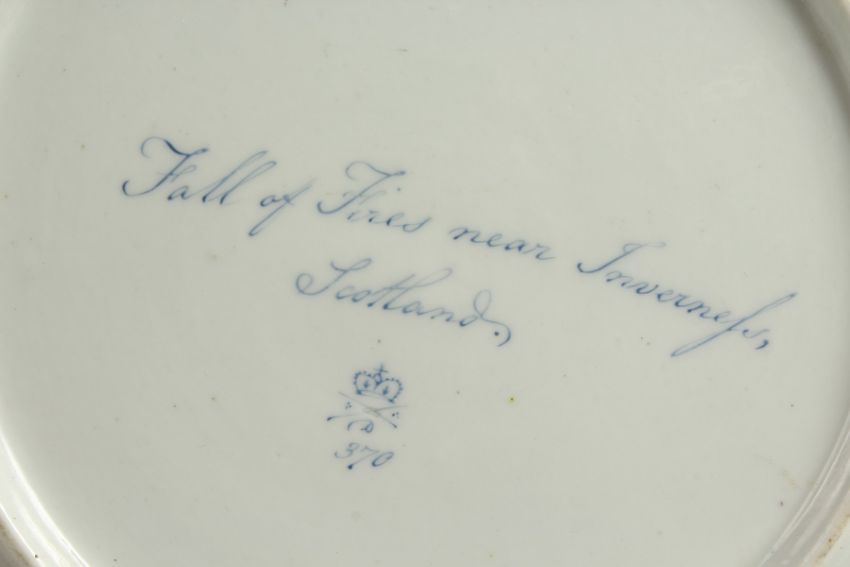 Fall of Fires near Inverneſs,
Scotland.,
D
370